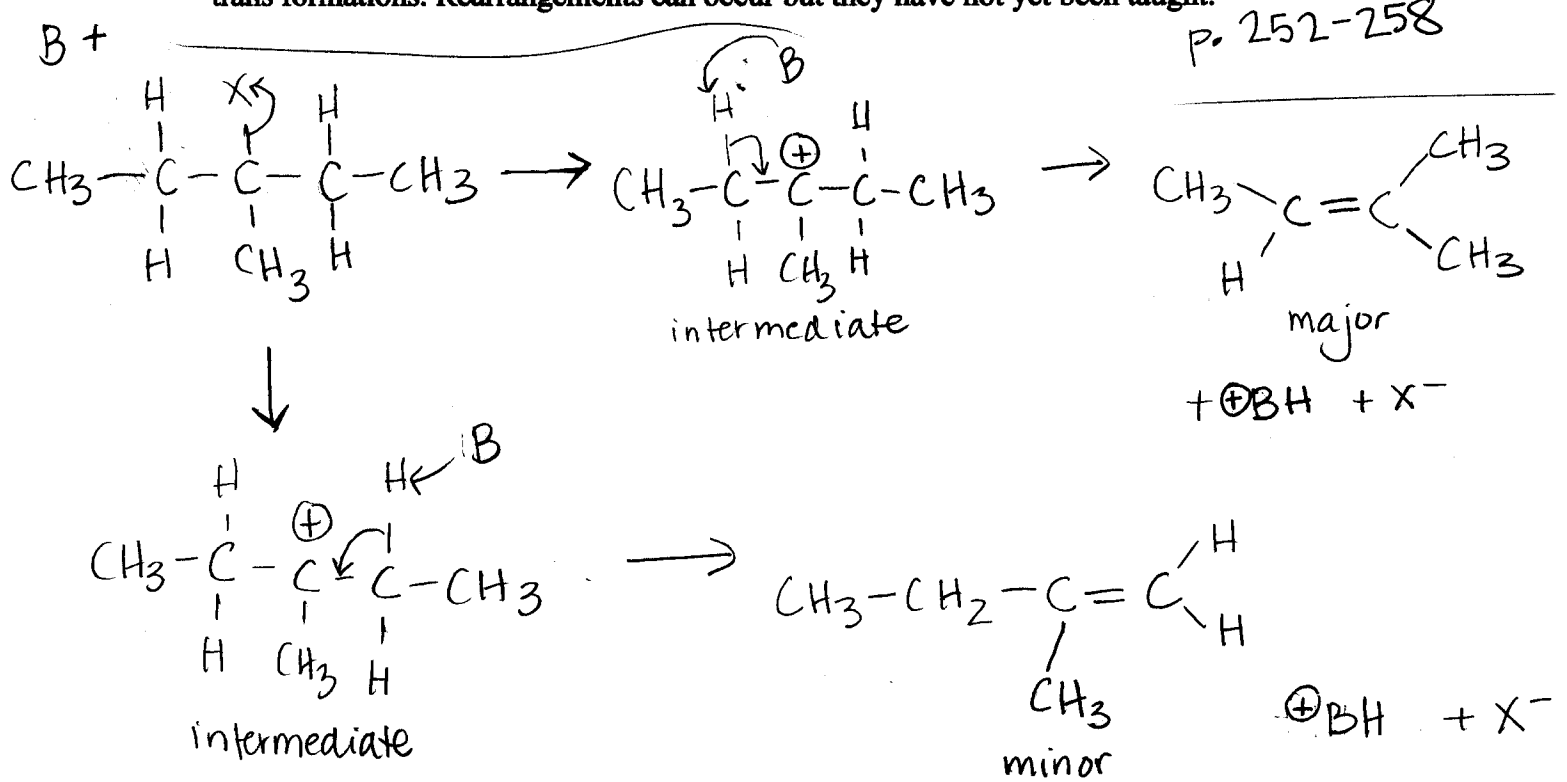 trans formations. Rearrangements can occur but they have not yet been taught.
p. 252-258
B +
H X H
CH3-C-C-C-CH3
H CH3 H
H : B
H H
⊕
CH3-C-C-C-CH3
H CH3 H
intermediate
CH3 C=C CH3
H CH3
major
+ ⊕BH + X-
H ⊕ H :B
CH3-C-C-C-CH3
H CH3 H
intermediate
CH3-CH2-C=C H
H
CH3
minor
⊕BH + X-